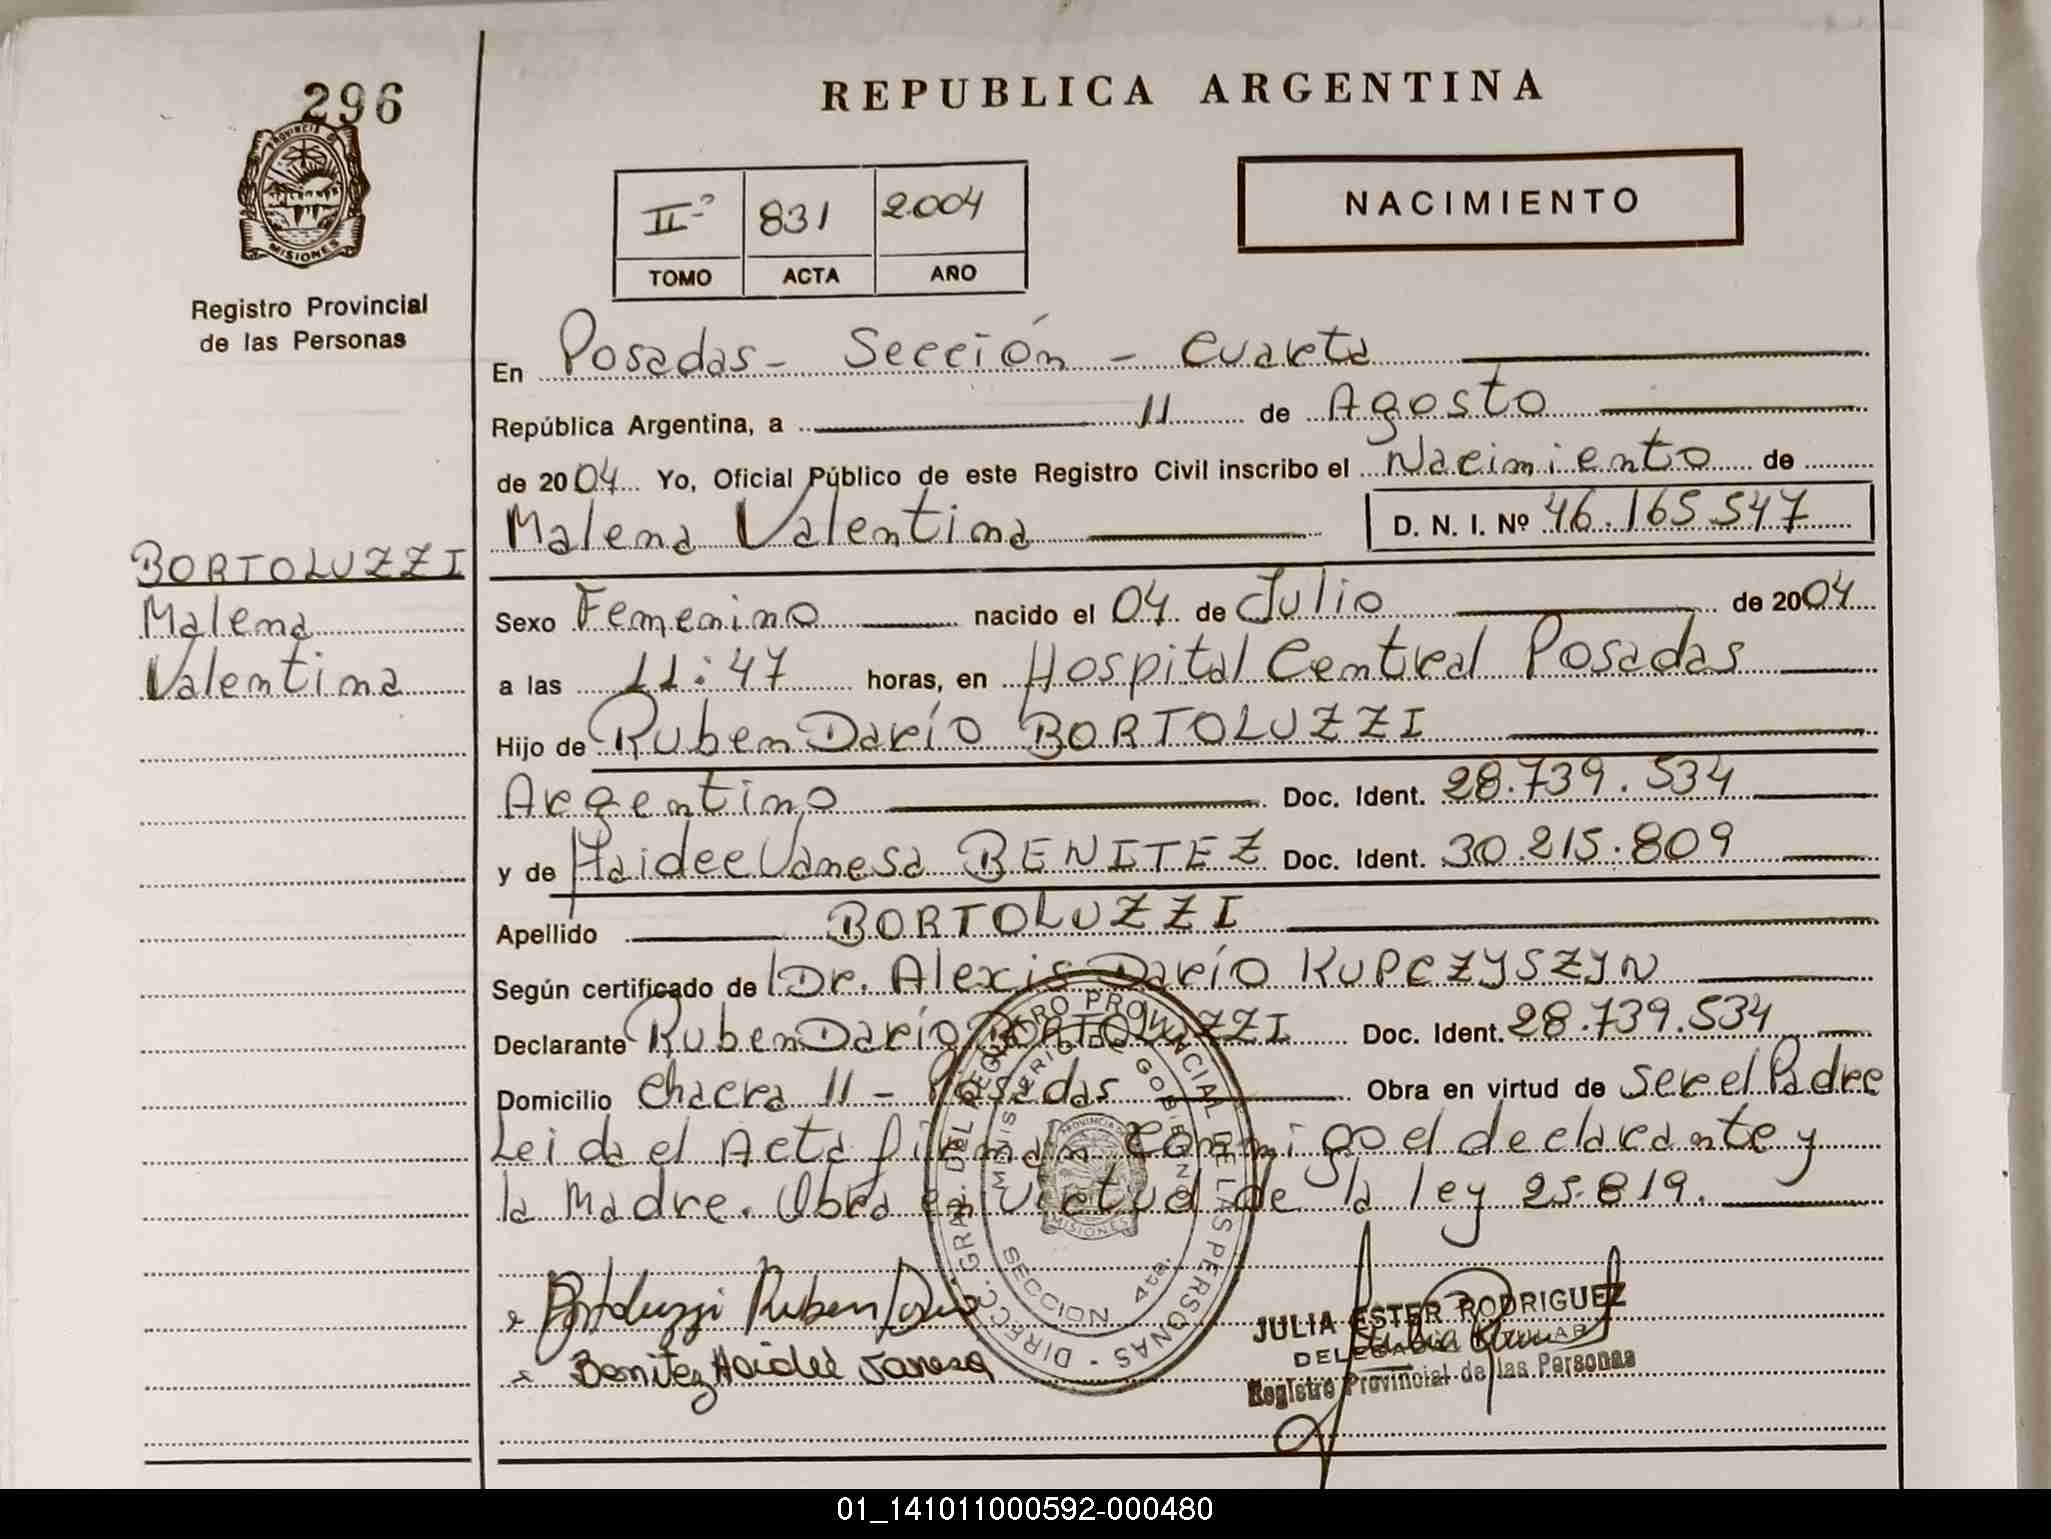 296
REPUBLICA ARGENTINA
PROVINCIA DE
MISIONES
Registro Provincial
de las Personas
IIº 831 2.004
TOMO ACTA AÑO
NACIMIENTO
En Posadas - Sección - Cuarta
República Argentina, a 11 de Agosto
de 2004 Yo, Oficial Público de este Registro Civil inscribo el Nacimiento de
Malena Valentina D. N. I. Nº 46.165.547
BORTOLUZZI
Malena
Valentina
Sexo Femenino nacido el 04 de Julio de 2004
a las 11:47 horas, en Hospital Central Posadas
Hijo de Ruben Darío BORTOLUZZI
Argentino Doc. Ident. 28.739.534
y de Haidee Vanesa BENITEZ Doc. Ident. 30.215.809
Apellido BORTOLUZZI
Según certificado de Dr. Alexis Darío KUPCZYSZYN
Declarante Ruben Darío BORTOLUZZI Doc. Ident. 28.739.534
Domicilio Chacra 11 - Posadas Obra en virtud de ser el Padre
Leida el Acta firman conmigo el declarante y
la Madre. Obra en virtud de la ley 25.819.
DIRECC. GRAL. DEL REGISTRO PROVINCIAL DE LAS PERSONAS -
MINISTERIO DE GOBIERNO
PROVINCIA DE
MISIONES
SECCION 4ta.
Bortoluzzi Ruben Dario
Benitez Haideé Vanesa
JULIA ESTER RODRIGUEZ
Registro Provincial de las Personas
01_141011000592-000480